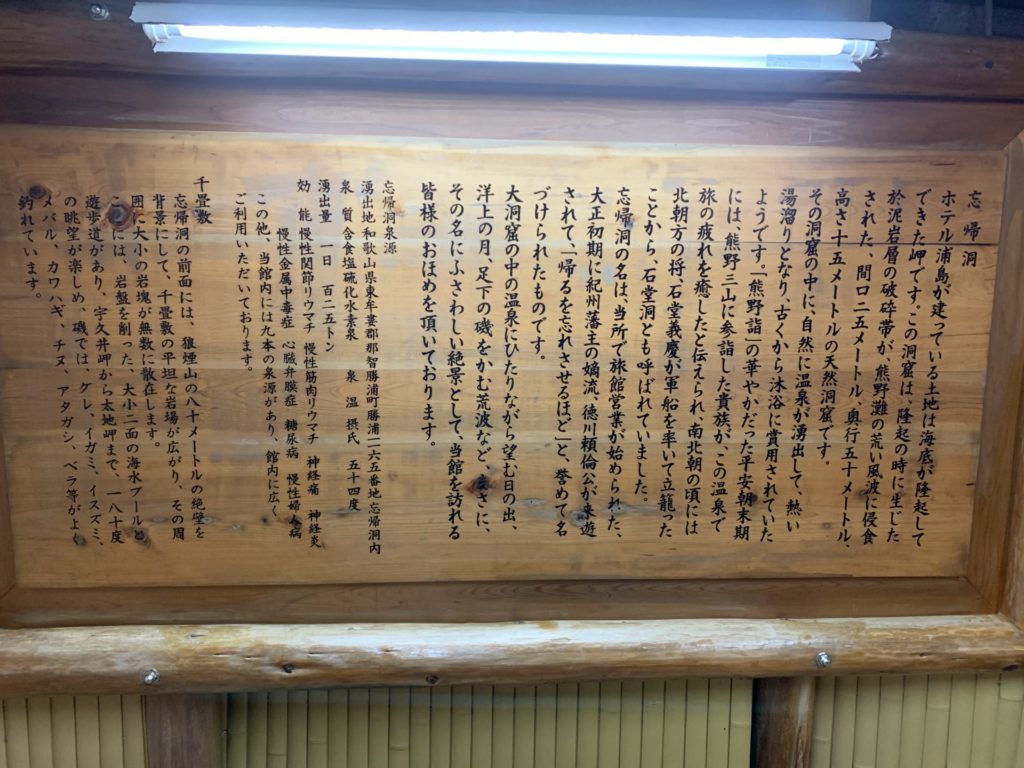 忘帰洞
ホテル浦島が建っている土地は海底が隆起して
できた岬です。この洞窟は、隆起の時に生じた
於泥岩層の破砕帯が、熊野灘の荒い風波に侵食
された、間口二五メートル、奥行五十メートル、
高さ十五メートルの天然洞窟です。
その洞窟の中に、自然に温泉が湧出して、熱い
湯溜りとなり、古くから沐浴に賞用されていた
ようです。「熊野詣」の華やかだった平安朝末期
には、熊野三山に参詣した貴族が、この温泉で
旅の疲れを癒したと伝えられ、南北朝の頃には
北朝方の将、石堂義慶が軍船を率いて立籠った
ことから、石堂洞とも呼ばれていました。
忘帰洞の名は、当所で旅館営業が始められた、
大正初期に紀州藩主の嫡流、徳川頼倫公が来遊
されて、「帰るを忘れさせるほど」と、誉めて名
づけられたものです。
大洞窟の中の温泉にひたりながら望む日の出、
洋上の月、足下の磯をかむ荒波など、まさに、
その名にふさわしい絶景として、当館を訪れる
皆様のおほめを頂いております。
忘帰洞泉源
湧出地 和歌山県東牟婁郡那智勝浦町勝浦一一六五番地忘帰洞内
泉質 含食塩硫化水素泉 泉温 摂氏 五十四度
湧出量 一日 百二五トン
効能 慢性関節リウマチ 慢性筋肉リウマチ 神経痛 神経炎
慢性金属中毒症 心臓弁膜症 糖尿病 慢性婦人病
この他、当館内には九本の泉源があり、館内に広く、
ご利用いただいております。
千畳敷
忘帰洞の前面には、狼煙山の八十メートルの絶壁を
背景にして、千畳敷の平坦な岩場が広がり、その周
囲に大小の岩塊が無数に散在します。
ここには、岩盤を削った、大小二面の海水プールと
遊歩道があり、宇久井岬から太地岬まで、一八十度
の眺望が楽しめ、磯では、グレ、イガミ、イスズミ、
メバル、カワハギ、チヌ、アタガシ、ベラ等がよく
釣れています。